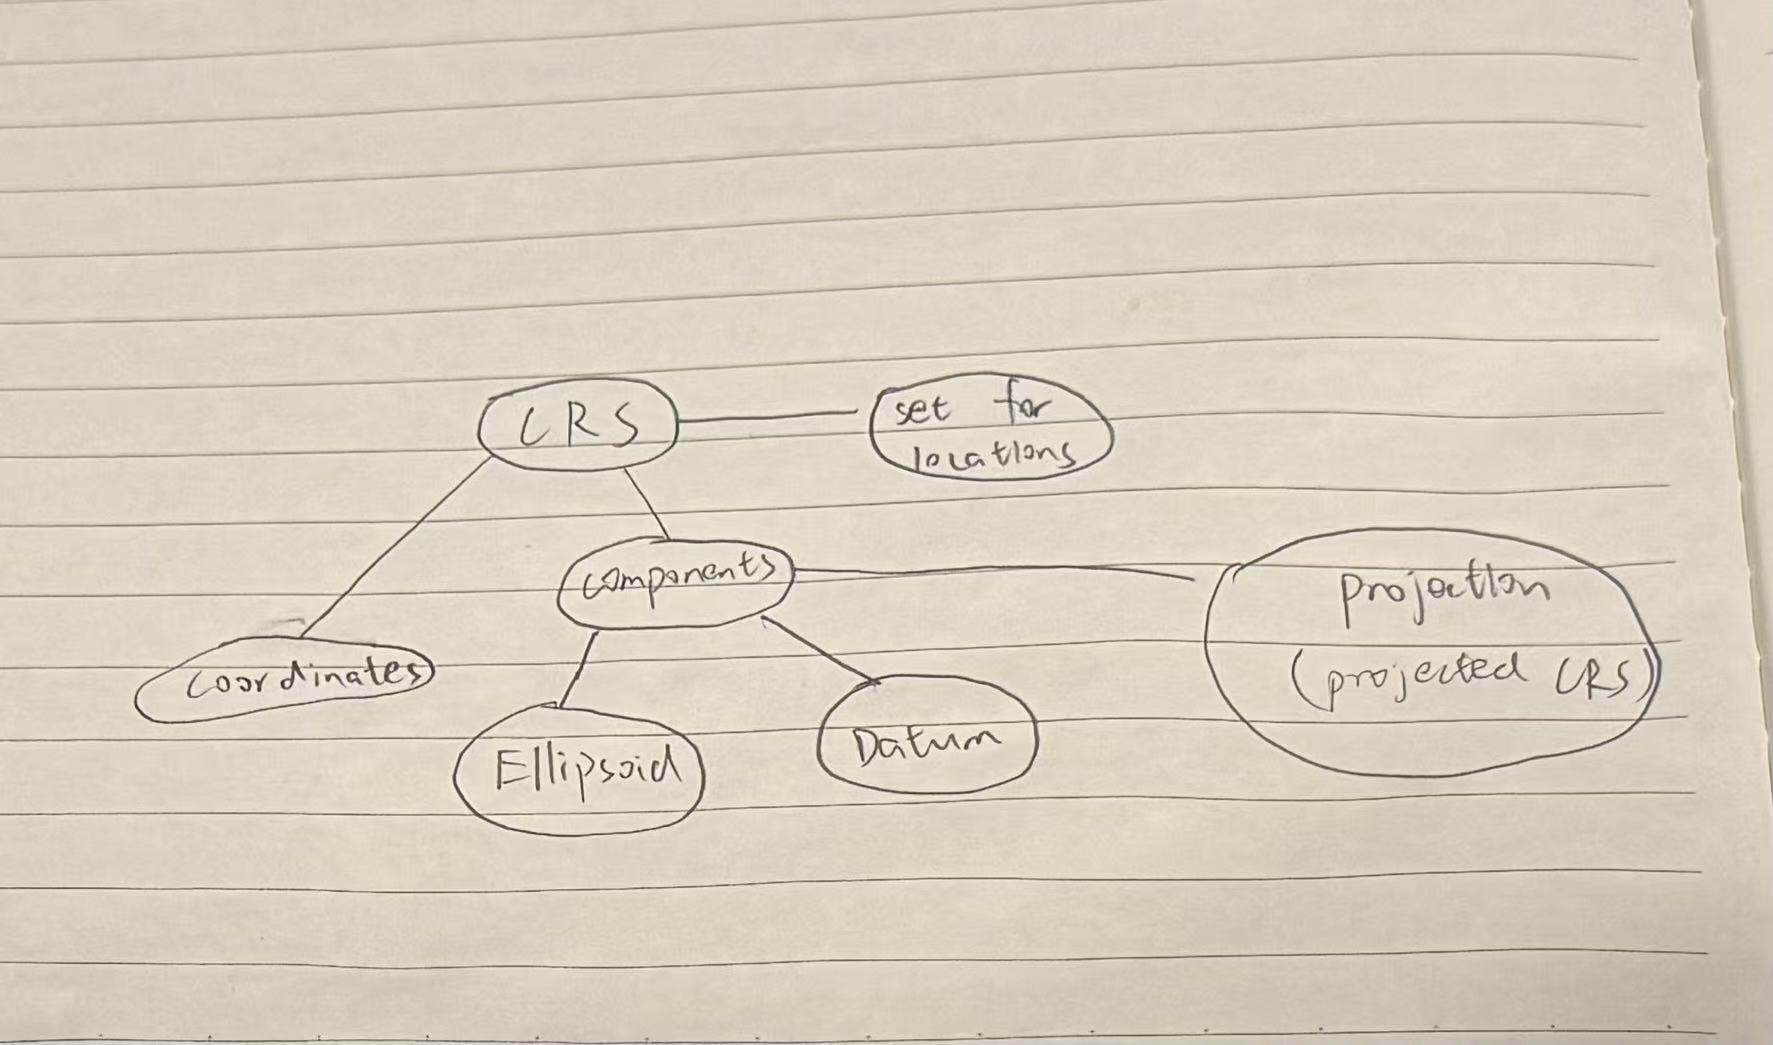 CRS
set for
locations
components
projection
(projected CRS)
coordinates
Ellipsoid
Datum